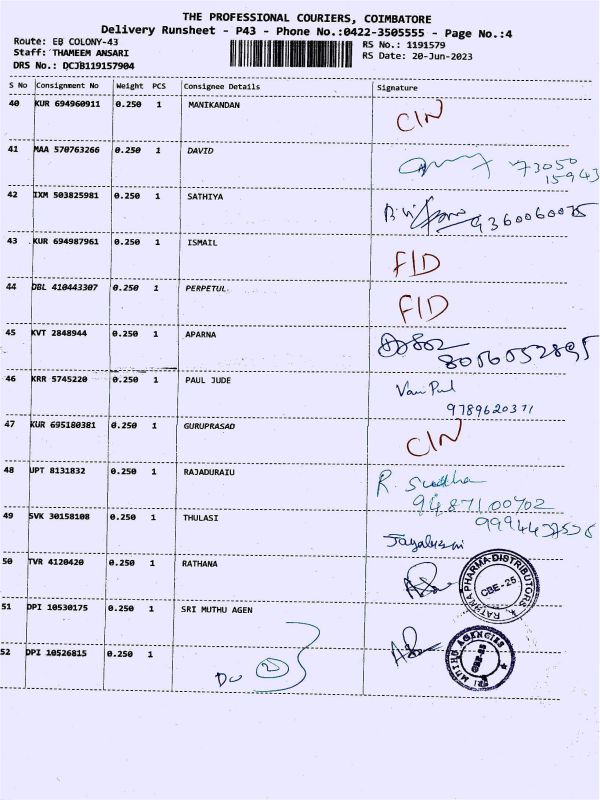 THE PROFESSIONAL COURIERS, COIMBATORE
Delivery Runsheet - P43 - Phone No.:0422-3505555 - Page No.:4
Route: EB COLONY-43 RS No.: 1191579
Staff: THAMEEM ANSARI RS Date: 20-Jun-2023
DRS No.: DCJB119157904
S No Consignment No Weight PCS Consignee Details Signature
40 KUR 694960911 0.250 1 MANIKANDAN CIN
41 MAA 570763266 0.250 1 DAVID 73050
15943
42 IXM 503825981 0.250 1 SATHIYA 9360060075
43 KUR 694987961 0.250 1 ISMAIL FID
44 DBL 410443307 0.250 1 PERPETUL FID
45 KVT 2848944 0.250 1 APARNA
46 KRR 5745220 0.250 1 PAUL JUDE
9789620371
47 KUR 695180381 0.250 1 GURUPRASAD CIN
48 UPT 8131832 0.250 1 RAJADURAIU R. Sudha
9487100702
49 SVK 30158108 0.250 1 THULASI
50 TVR 4120420 0.250 1 RATHANA RATHNA PHARMA DISTRIBUTORS CBE-25
51 DPI 10530175 0.250 1 SRI MUTHU AGEN
52 DPI 10526815 0.250 1 Do SRI MUTHU AGENCIES CBE-25